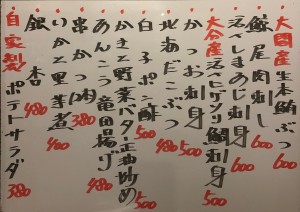 大間産生本鮪ぶつ 600
鯨尾肉刺し 600
活〆しまあじ刺身 600
大分産活〆ヒゲソリ鯛刺身 500
かつお刺身 500
北海だこぶつ 480
白子ポン酢 500
かきと野菜バター正油炒め 500
あんこう竜田揚げ 480
串かつ(肉) 380
いかと里芋煮 400
銀杏 480
自家製ポテトサラダ 380